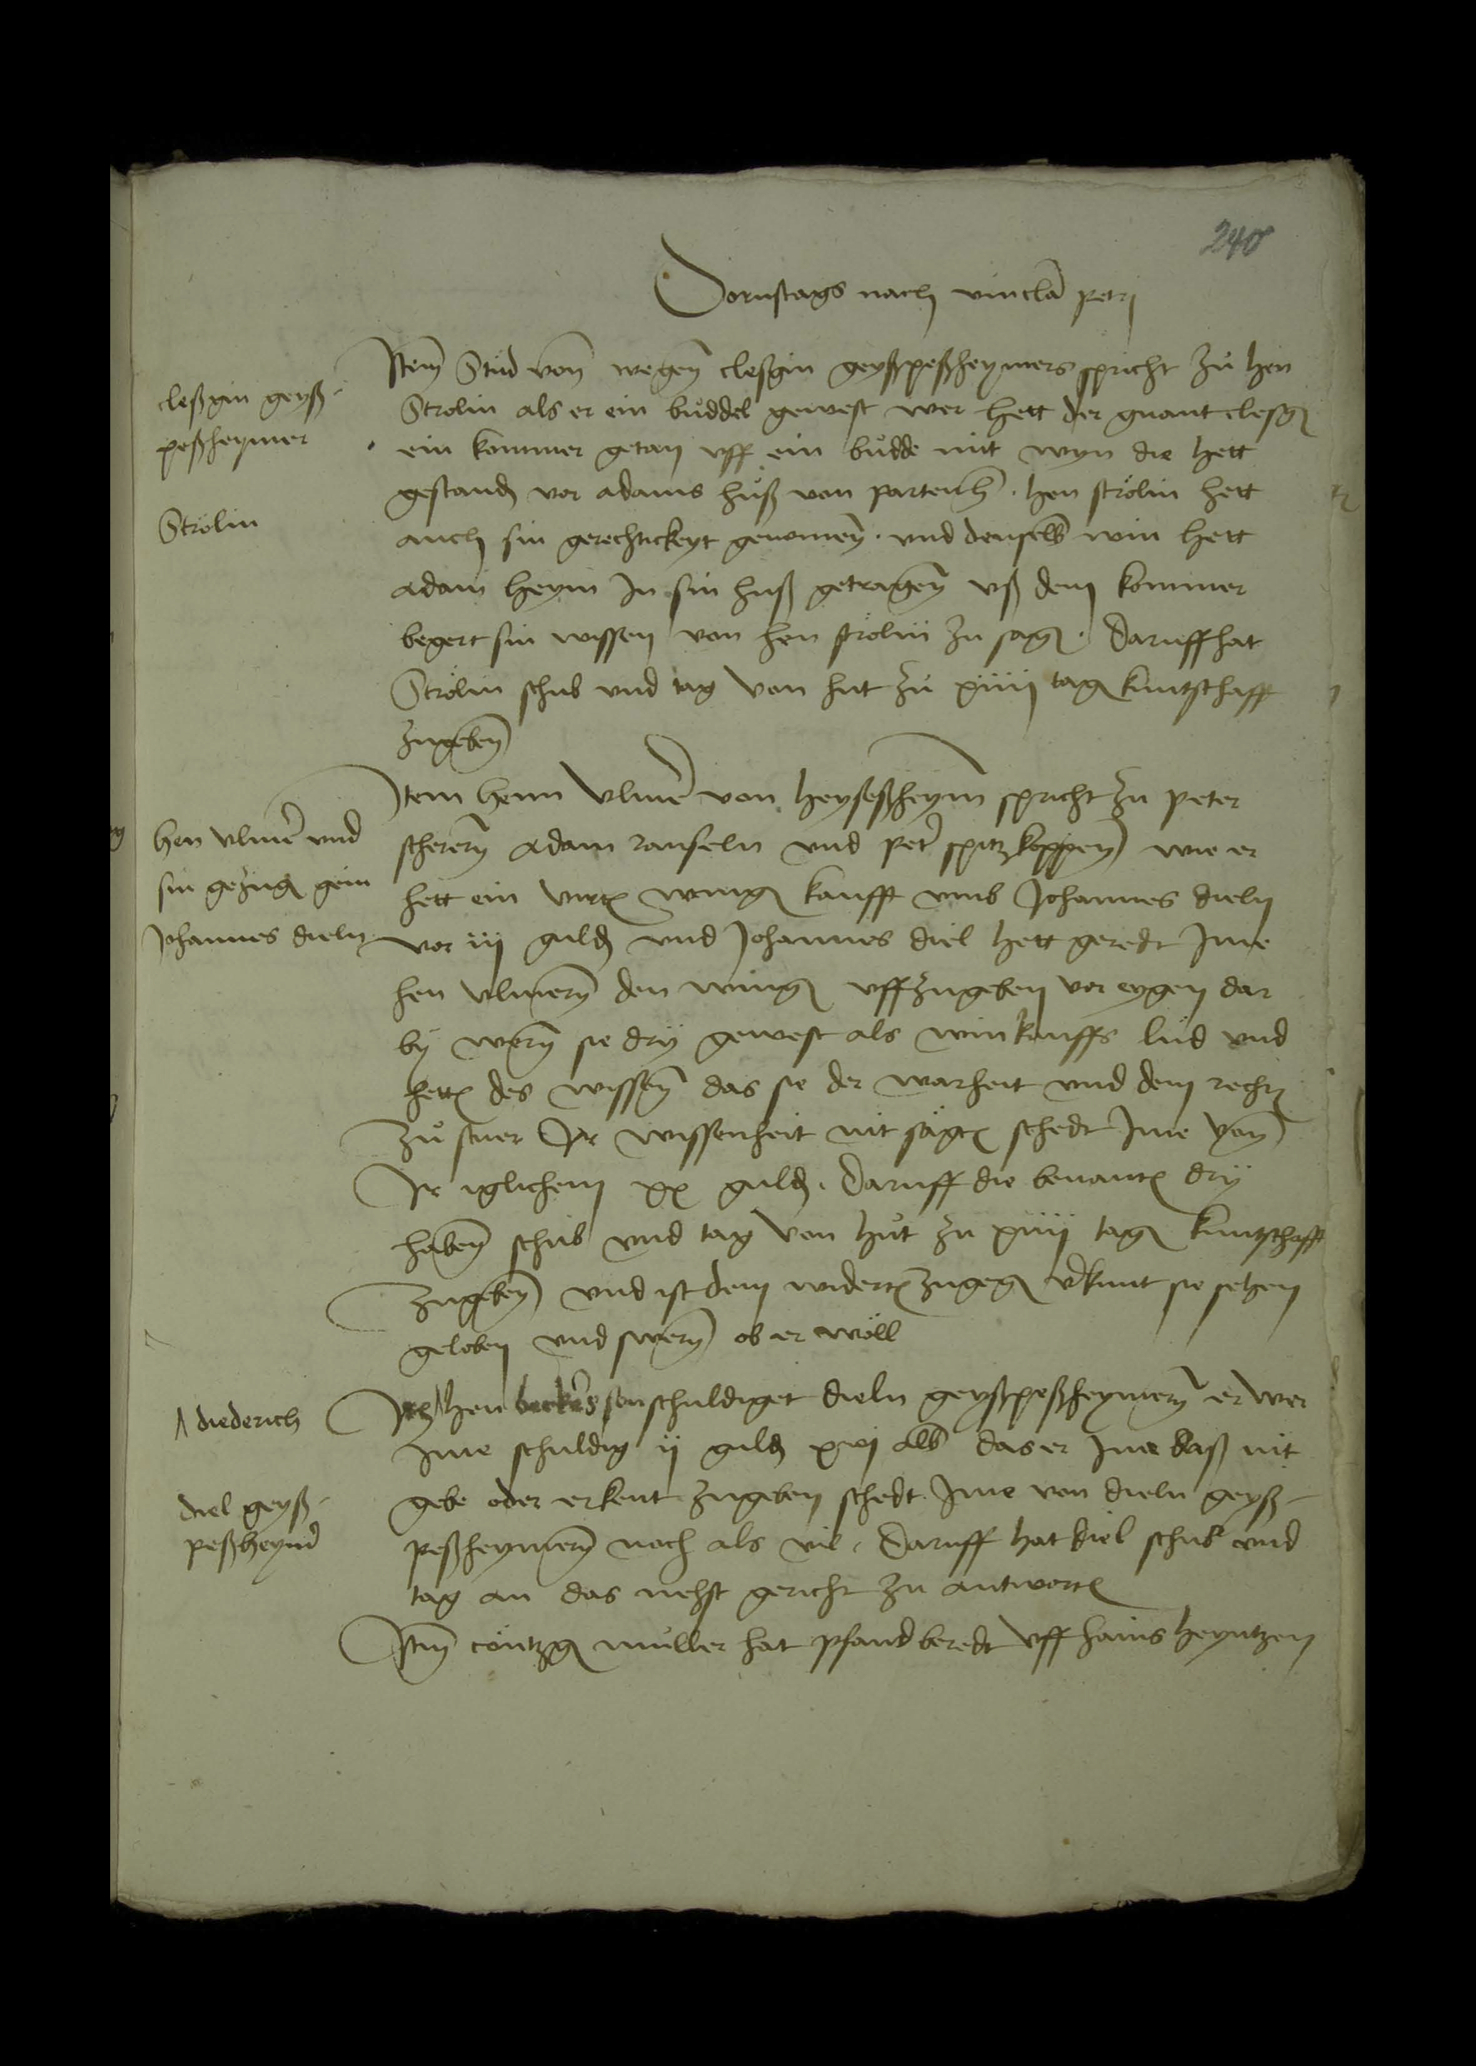 240
Dornstags nach vincla petri
cleßgin geyß-
peßheymer
Strolin
Item Stud von wegen cleßgin geyßpeßheymers spricht zu hen
Strolin als er ein buddel gewest wer hett der gnant clesg
ein kommer getan uff ein budde mit wyn die hett
gestand vor adams huß von partenh. hen strolin hett
auch sin gerechtickeyt genomen. und denselb win hett
adam heym in sin huß getragen uß dem kommer
begert sin wissen von hen strolin zu sag. Daruff hat
Strolin schub und tag von hut zu xiiii tag kuntschafft
zugeben
hen ulmer und
sin gezug gein
Johannes dieln
Item henn Ulmer von heyseßheym spricht zu peter
scherern adam ranseln und peter spitzkoppen wie er
hett ein virt wingt kaufft umb Johannes dieln
vor iii guld und Johannes diel hett geredt Ime
hen ulmern den wing uffzugeben vor eygen dar
by wern sie dry gewest als winkauffs lud und
hett des wissen das sie der warheit und dem recht
zu stuer Ir wissenheit nit sagt schedt Ime von
Ir iglichem xx guld. Daruff die benant dry
haben schub und tag von hut zu xiiii tag kuntschafft
zugeben und ist dem widert zugeg verkunt sie sehen
geloben und swern ob er woll
diederich
diel geyß-
peßheymer
Item hen beckers son schuldiget dieln geyßpeßheymern er wer
Ime schuldig ii guld xvi alb das er Ime daß nit
gebe oder erkent zugeben schedt Ime von dieln geyß-
peßheymern noch als vil. Daruff hat diel schub und
tag an das nehst gericht zu antwort
Item contzg muller hat pfand beredt uff hans heyntzen